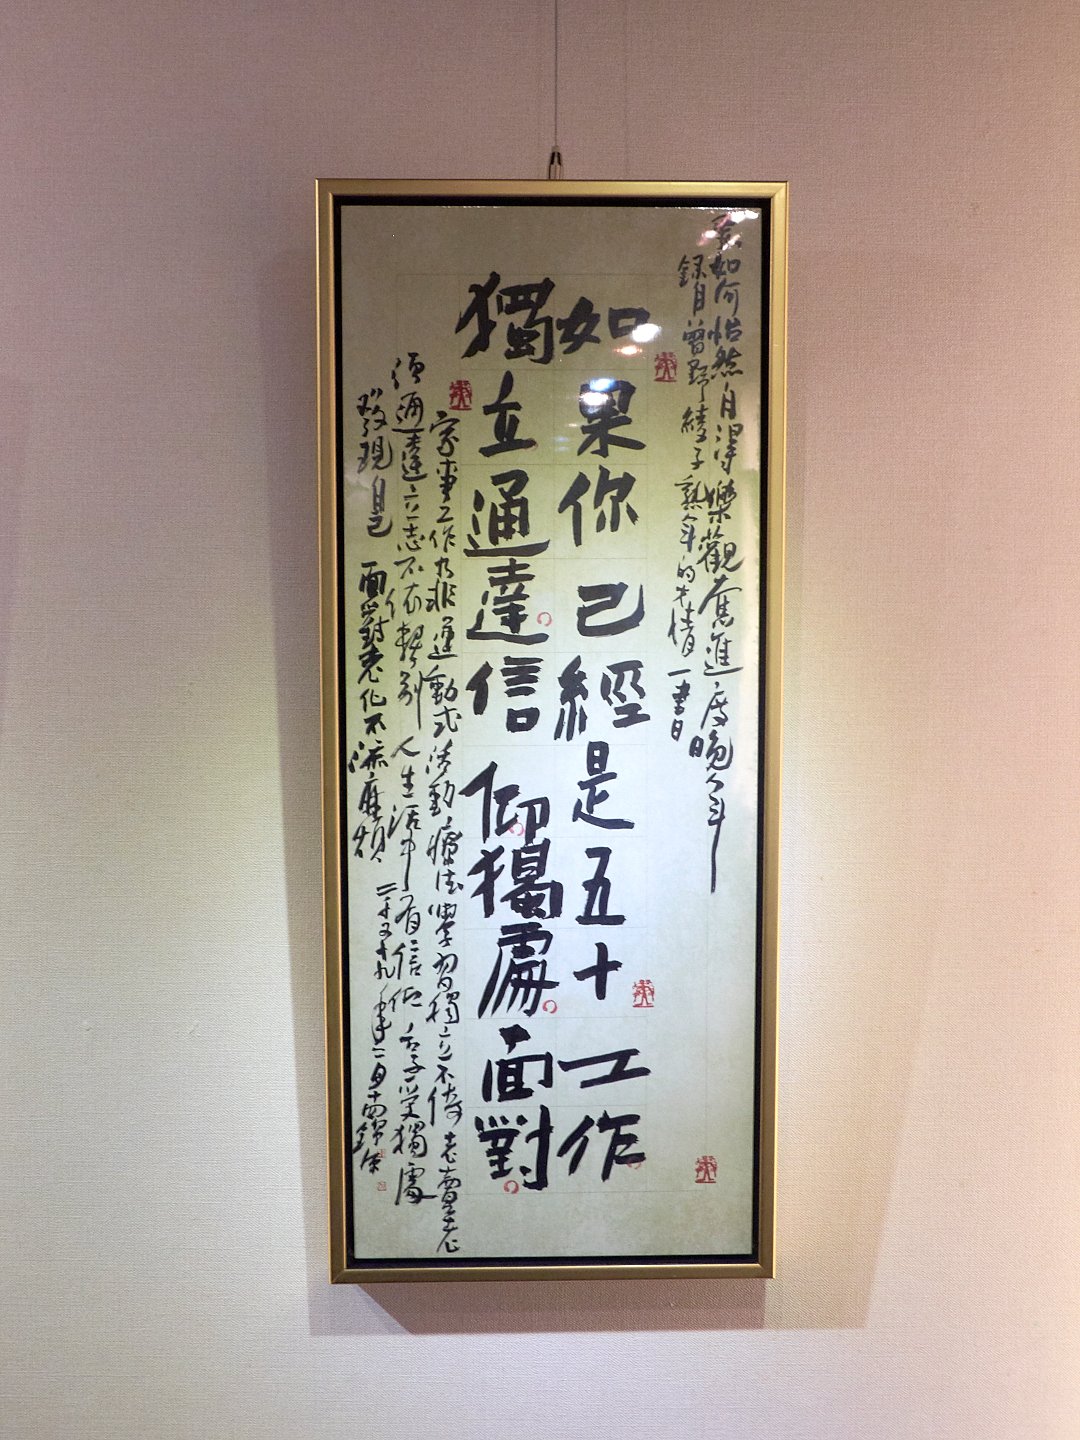 如何怡然自得樂觀奮進度晚年
錄自曾野綾子熟年的才情一書日
如果你已經是五十工作
獨立通達信仰獨處面對
家事工作乃非運動式活動療法學習獨立不倚老賣老
須通達立志不依賴別人生活中有信仰享受獨處
發現自己面對老化不添麻煩二〇一九年二月